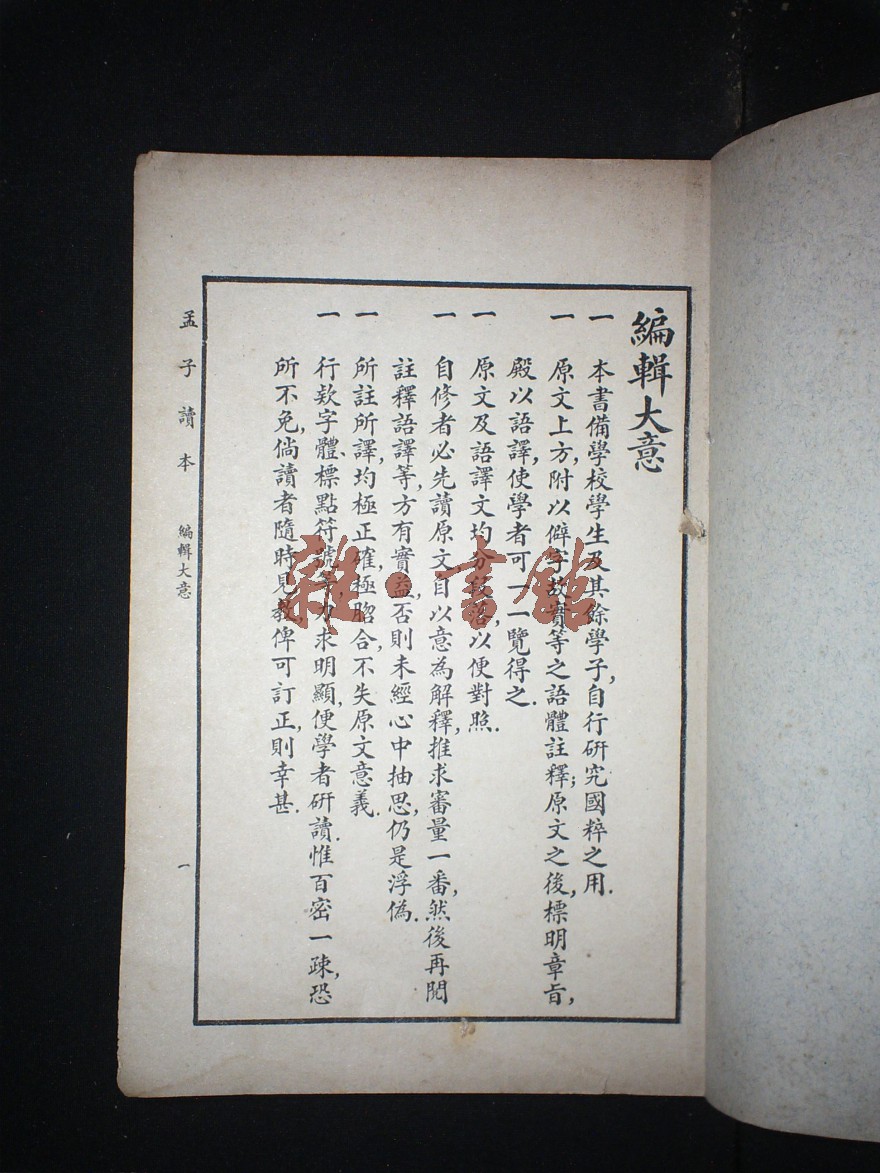 編輯大意
一 本書備學校學生及其餘學子,自行研究國粹之用.
一 原文上方,附以僻字故實等之語體註釋;原文之後,標明章旨,
殿以語譯,使學者可一一覽得之.
一 原文及語譯文均分段落,以便對照.
一 自修者必先讀原文自以意為解釋,推求審量一番,然後再閱
註釋語譯等,方有實益,否則未經心中抽思,仍是浮偽.
一 所註所譯,均極正確,極脗合,不失原文意義.
一 行欵字體、標點符號等,力求明顯,便學者研讀.惟百密一疎,恐
所不免,倘讀者隨時見教,俾可訂正,則幸甚.
孟子讀本 編輯大意 一
雜·書館